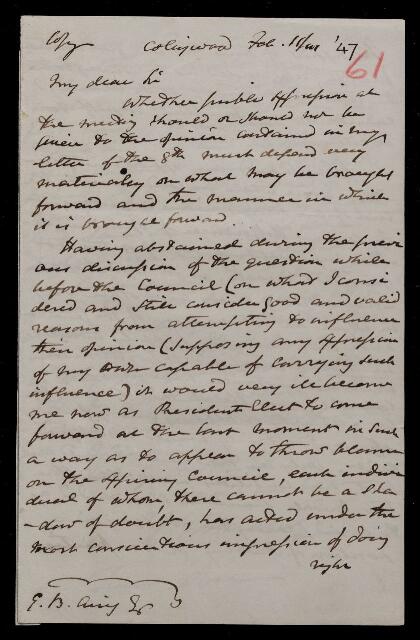 Copy Collingwood Feb. 11/47
61
My dear Sir
Whether public expression at
the meeting should or should not be
given to the opinion contained in my
letter of the 8th must depend very
materially on what may be brought
forward and the manner in which
it is brought forward.
Having abstained during the previ
ous discussion of the question while
before the Council (on what I consi
dered and still consider good and valid
reasons from attempting to influence
their opinion (supposing any expression
of my own capable of carrying such
influence) it would very ill become
me now as President Elect to come
forward at the last moment in such
a way as to appear to throw blame
on the Council, each indivi
dual of whom, there cannot be a sha
-dow of doubt, has acted under the
most conscientious impression of doing
right
G. B. Airy Esq